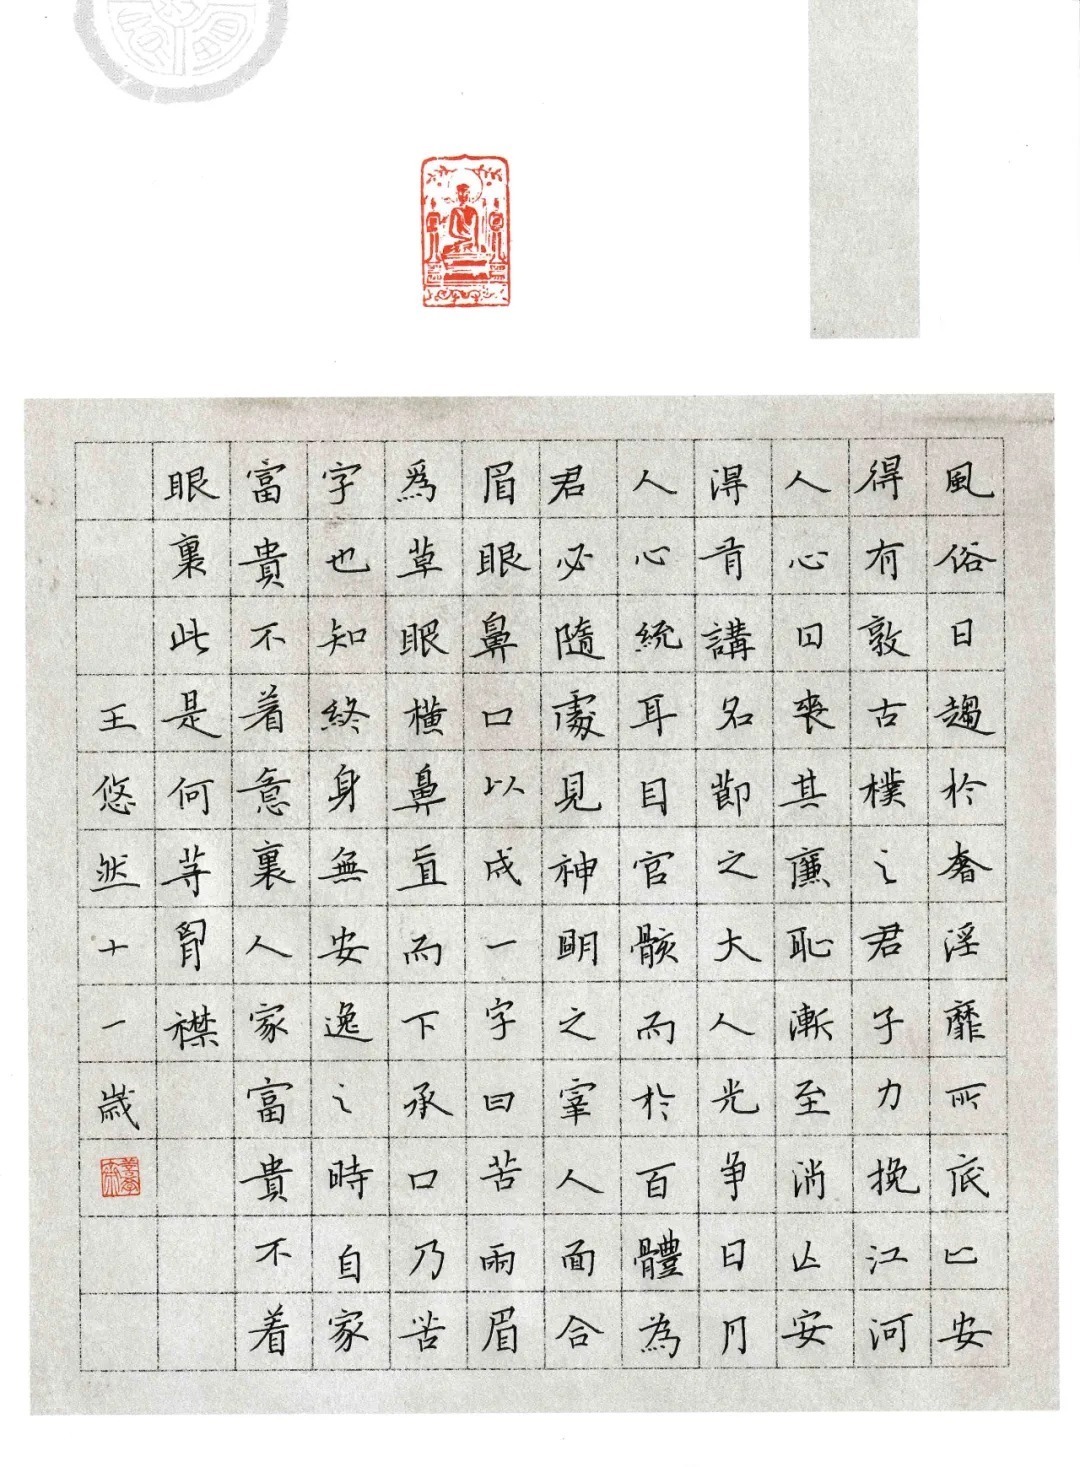 風俗日趨於奢淫靡所底止安
得有敦古樸之君子力挽江河
人心日喪其廉恥漸至消亡安
得有講名節之大人光爭日月
人心統耳目官骸而於百體為
君必隨處見神明之宰人面合
眉眼鼻口以成一字曰苦兩眉
爲草眼橫鼻直而下承口乃苦
字也知終身無安逸之時自家
富貴不着意裏人家富貴不着
眼裏此是何等胷襟
王悠然十一歲